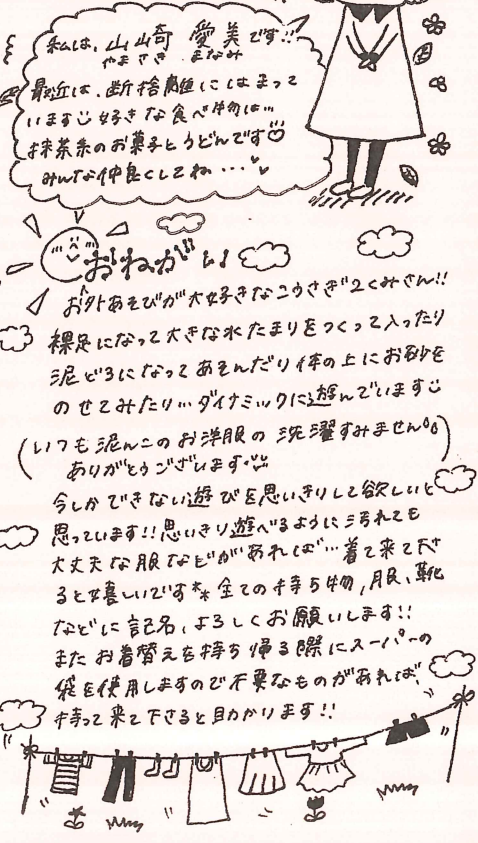 私は、山崎 愛美です!!
やまさき まなみ
最近は、断捨離にはまって
います 好きな食べ物は…
抹茶系のお菓子とうどんです♡
みんな仲良くしてね…
おねがい
お外あそびが大好きなこうさぎ2くみさん!!
裸足になって大きな水たまりをつくって入ったり
泥どろになってあそんだり体の上にお砂を
のせてみたり…ダイナミックに遊んでいます
(いつも泥んこのお洋服の洗濯すみません
ありがとうございます)
今しかできない遊びを思いきりして欲しいと
思っています!!思いきり遊べるように汚れても
大丈夫な服などがあれば…着て来て下さ
ると嬉しいです**全ての持ち物、服、靴
などに記名、よろしくお願いします!!
またお着替えを持ち帰る際にスーパーの
袋を使用しますので不要なものがあれば
持って来て下さると助かります!!